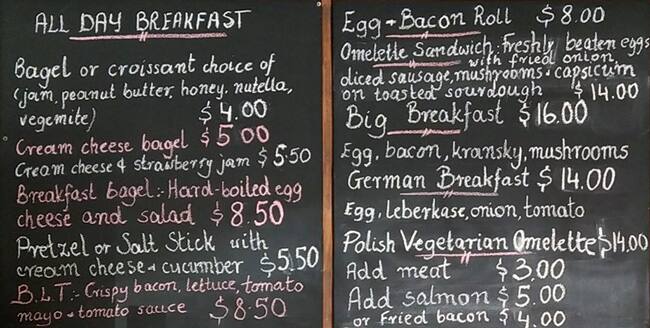 ALL DAY BREAKFAST
Bagel or croissant choice of
(jam, peanut butter, honey, nutella,
vegemite) $4.00
Cream cheese bagel $5.00
Cream cheese & strawberry jam $5.50
Breakfast bagel:- Hard-boiled egg
cheese and salad $8.50
Pretzel or Salt Stick with
cream cheese & cucumber $5.50
B.L.T:- Crispy bacon, lettuce, tomato
mayo & tomato sauce $8.50
Egg & Bacon Roll $8.00
Omelette Sandwich: Freshly beaten eggs
with fried onion
diced sausage, mushrooms & capsicum
on toasted sourdough $14.00
Big Breakfast $16.00
Egg, bacon, kransky, mushrooms
German Breakfast $14.00
Egg, leberkase, onion, tomato
Polish Vegetarian Omelette $14.00
Add meat $3.00
Add salmon $5.00
or Fried bacon $4.00